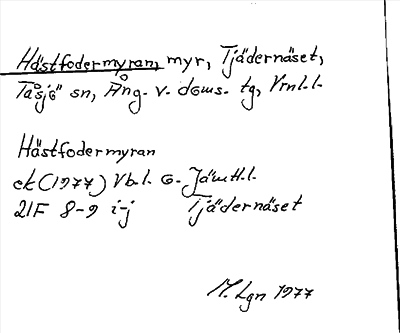 Hästfodermyran, myr, Tjädernäset,
Tåsjö sn, Ång. v. doms. tg, Vrnl.l.
Hästfodermyran
ek (1977) Vb.l. o. Jämtl.l.
21F 8-9 i-j Tjädernäset
M. Lgn 1977